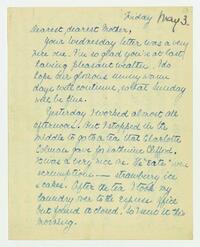 Friday May 3.
Dearest dearest Mother,
Your Wednesday letter was a very
nice one. I'm so glad you're at last
having pleasant weather. I do
hope our glorious sunny warm
days will continue, so that Sunday
will be fine.
Yesterday I worked almost all
afternoon. But I stopped in the
middle to go to a tea that Charlotte
Colman gave for Katherine Clifford.
It was a very nice one. The "eats" were
scrumptious — strawberry ice
& cakes. After the tea I took my
laundry over to the express office
but found it closed. So I sent it this
morning.